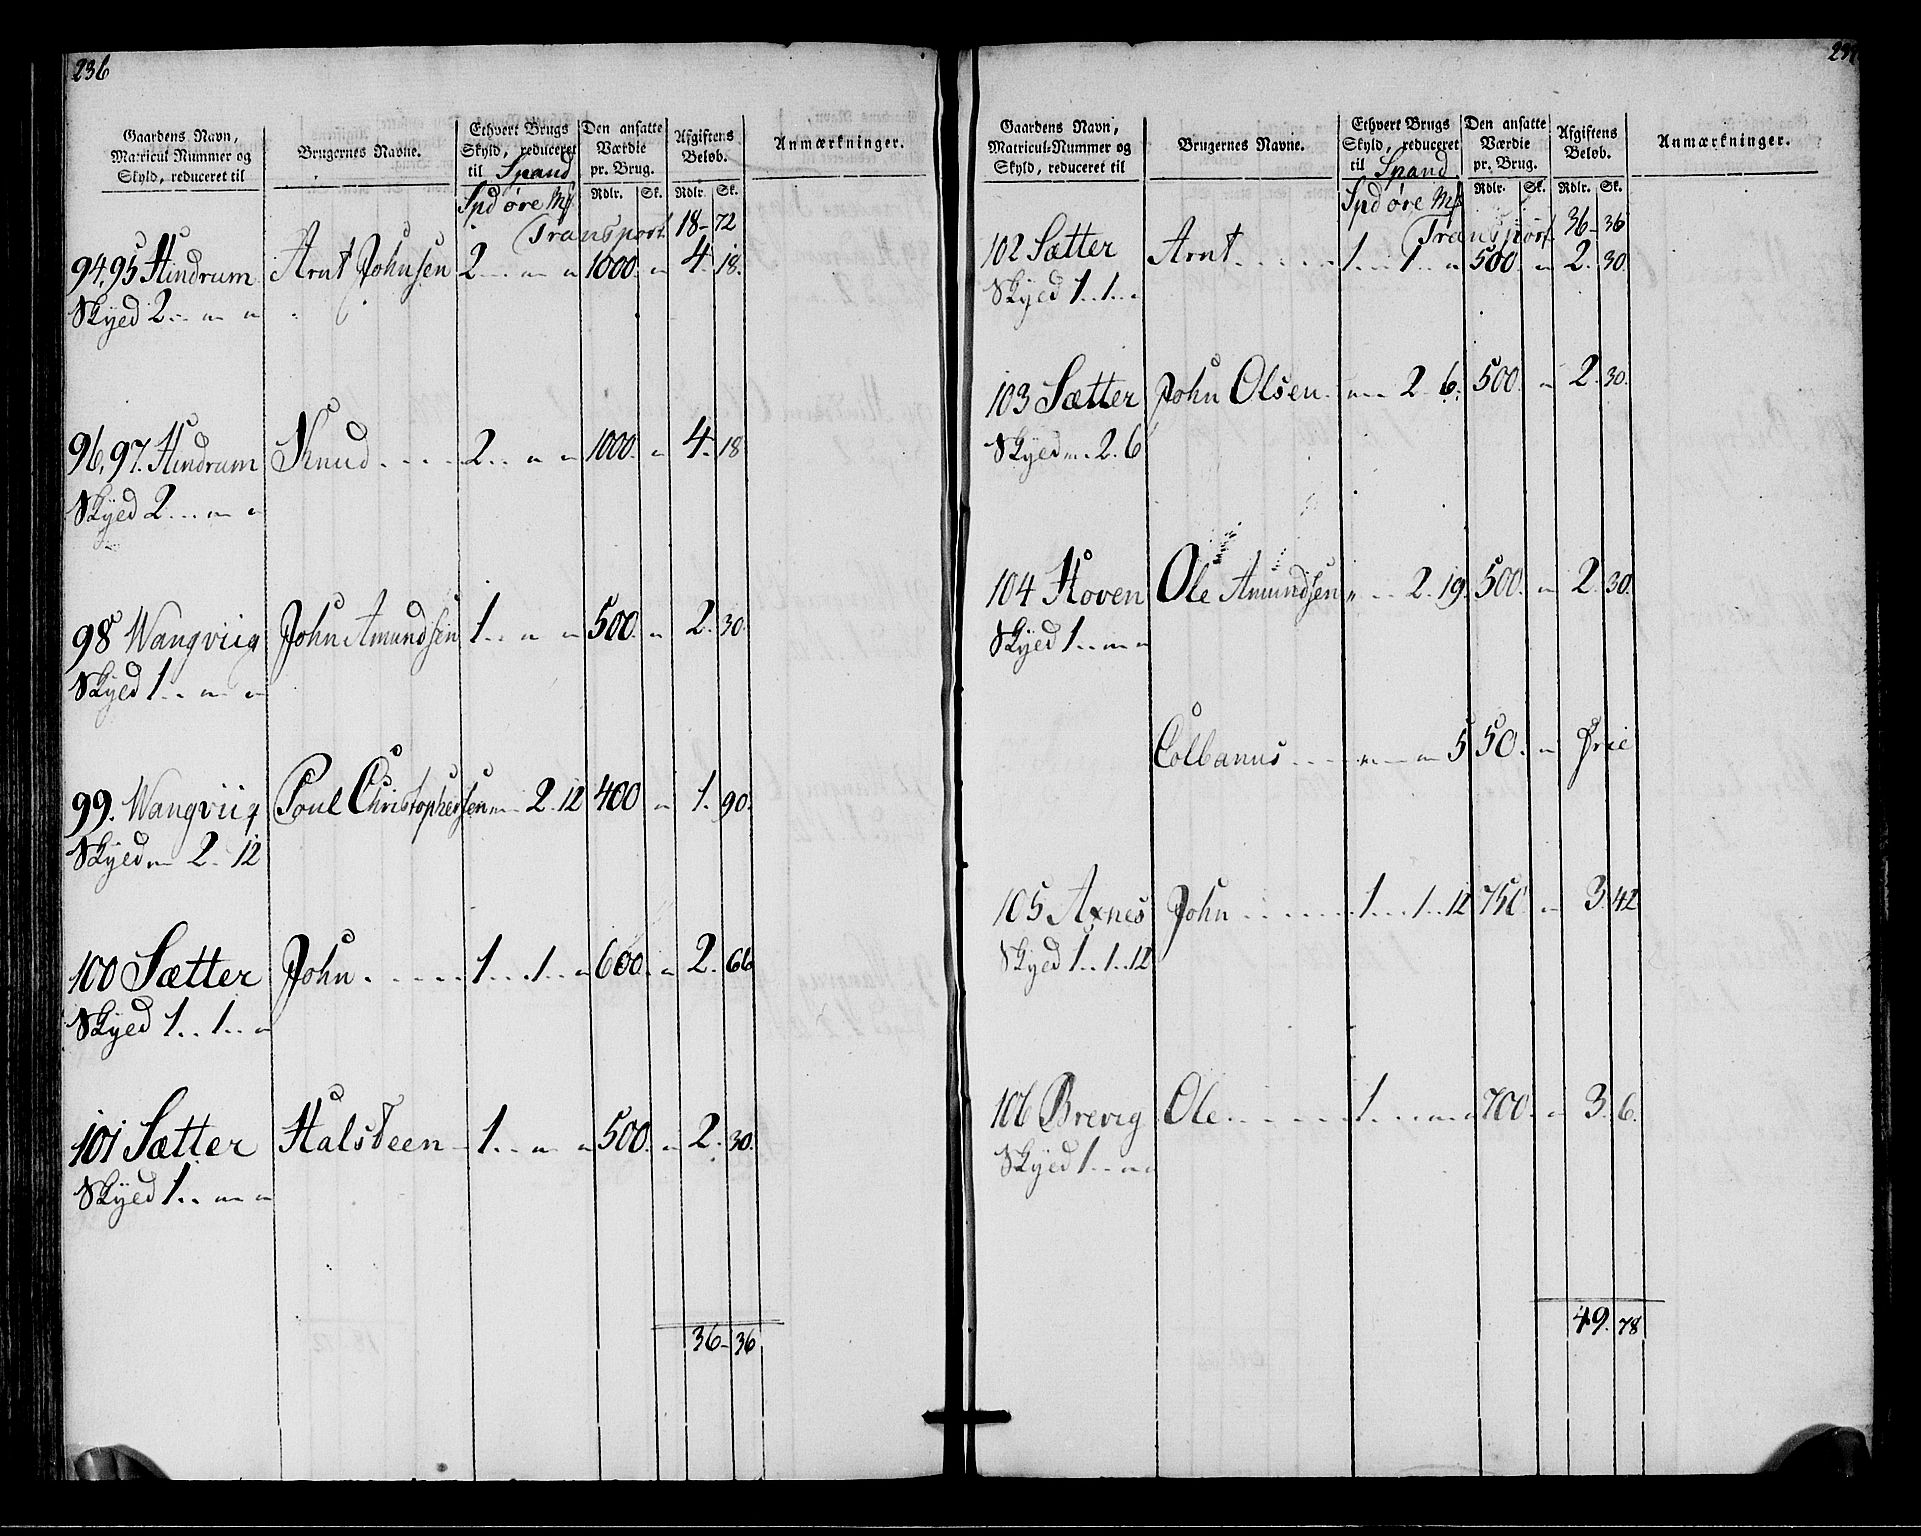 236
Gaardens Navn, Matricul-Nummer og Skyld, reduceret til
Brugernes Navne.
Ethvert Brugs Skyld, reduceret til Spand
Den ansatte Værdie pr. Brug.
Afgiftens Beløb.
Anmærkninger.
Spd øre Mk Rdlr. Sk. Rdlr. Sk.
Transport 18 - 72
94, 95 Hindrum Arnt Johnsen 2 . . „ „ 1000. „ 4. 18.
Skyed 2 . . „ „
96, 97. Hindrum Knud . . . . 2 . . „ „ 1000. „ 4. 18
Skyed 2 . . . „ „
98 Wangviig John Amundsen 1 . . „ „ 500. „ 2. 30.
Skyed 1 . . „ „
99. Wangviig Poul Christophersen „ 2. 12 400 „ 1. 90.
Skyed „ 2. 12
100 Sætter John . . . . . 1 . . . 1 . . „ 600. „ 2. 66
Skyed 1 . . 1 . . „
101 Sætter Halsteen 1 . . „ „ 500. „ 2. 30.
Skyed 1 . . „ „
36 - 36
Gaardens Navn, Matricul-Nummer og Skyld, reduceret til
Brugernes Navne.
Ethvert Brugs Skyld, reduceret til Spand
Den ansatte Værdie pr. Brug.
Afgiftens Beløb.
Anmærkninger.
Spd øre Mk Rdlr. Sk. Rdlr. Sk.
Transport 36 - 36
102 Sætter Arnt . . . . . 1 . . . 1 . . „ 500. „ 2. 30.
Skyed 1 . . 1 . . „
103 Sætter John Olsen. „ 2. 6. 500. „ 2. 30.
Skyed „ . 2. 6
104 Hoven Ole Amundsen „ . . 2. 19. 500. „ 2. 30.
Skyed 1 . . „ „
Colbanus . . . „ „ 5 50. „ Frie
105 Axnes John . . . . . . 1 . . . 1 . . 12 750 „ 3 42
Skyed 1 . . 1 . . 12
106 Brevig Ole . . . . . 1 . . . „ „ 700. „ 3. 6.
Skyed 1 . . „ „
49. 78